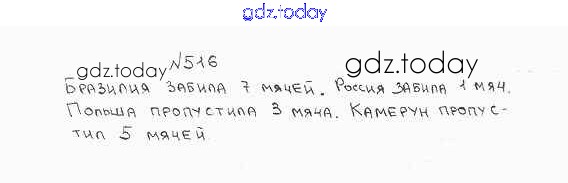 gdz.today
№516
gdz.today
gdz.today
Бразилия забила 7 мячей. Россия забила 1 мяч.
Польша пропустила 3 мяча. Камерун пропус-
тил 5 мячей